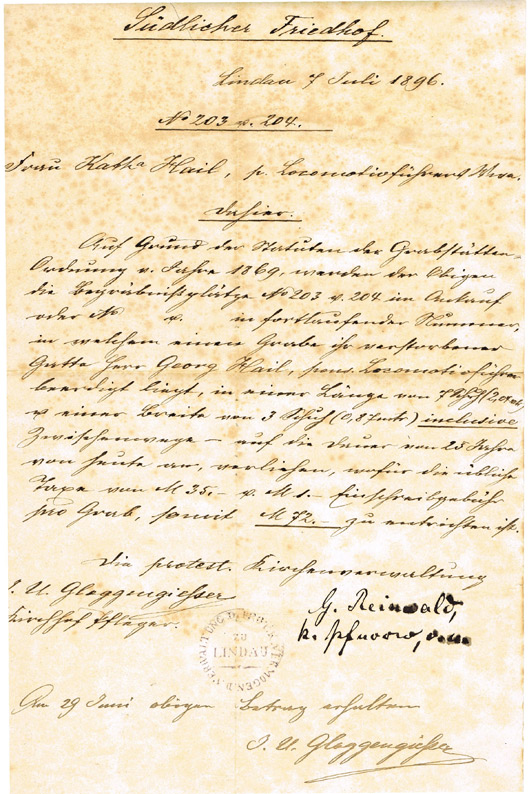 Südlicher Friedhof.
Lindau 7 Juli 1896.
No 203 u. 204.
Frau Katha Hail, p. Locomotivführers Wwe.
dahier.
Auf Grund der Statuten der Grabstätten-
Ordnung v. Jahre 1869, werden der Obigen
die Begräbnißplätze No 203 u. 204 im Ankauf
oder No u. in fortlaufender Nummer,
in welchem einen Grabe ihr verstorbener
Gatte Herr Georg Hail, pens. Locomotivführer
beerdigt liegt, in einer Länge von 7 Schuh
u einer Breite von 3 Schuh (0,87 mtr) inclusive
Zwischenwege – auf die Dauer von 25 Jahre
von heute an, verliehen, wofür die übliche
Taxe von M 35.- u. M 1.- Einschreibgebühr
pro Grab, somit M 72.- zu entrichten ist.
Die protest. Kirchenverwaltung
J. U. Gloggengiesser
Kirchhof Pfleger.
G. Reinwald,
k. Pfarrer,
VERWALTUNG D. PROT.
ZU
LINDAU
Am 29 Juni obigen Betrag erhalten
J. U. Gloggengiesser